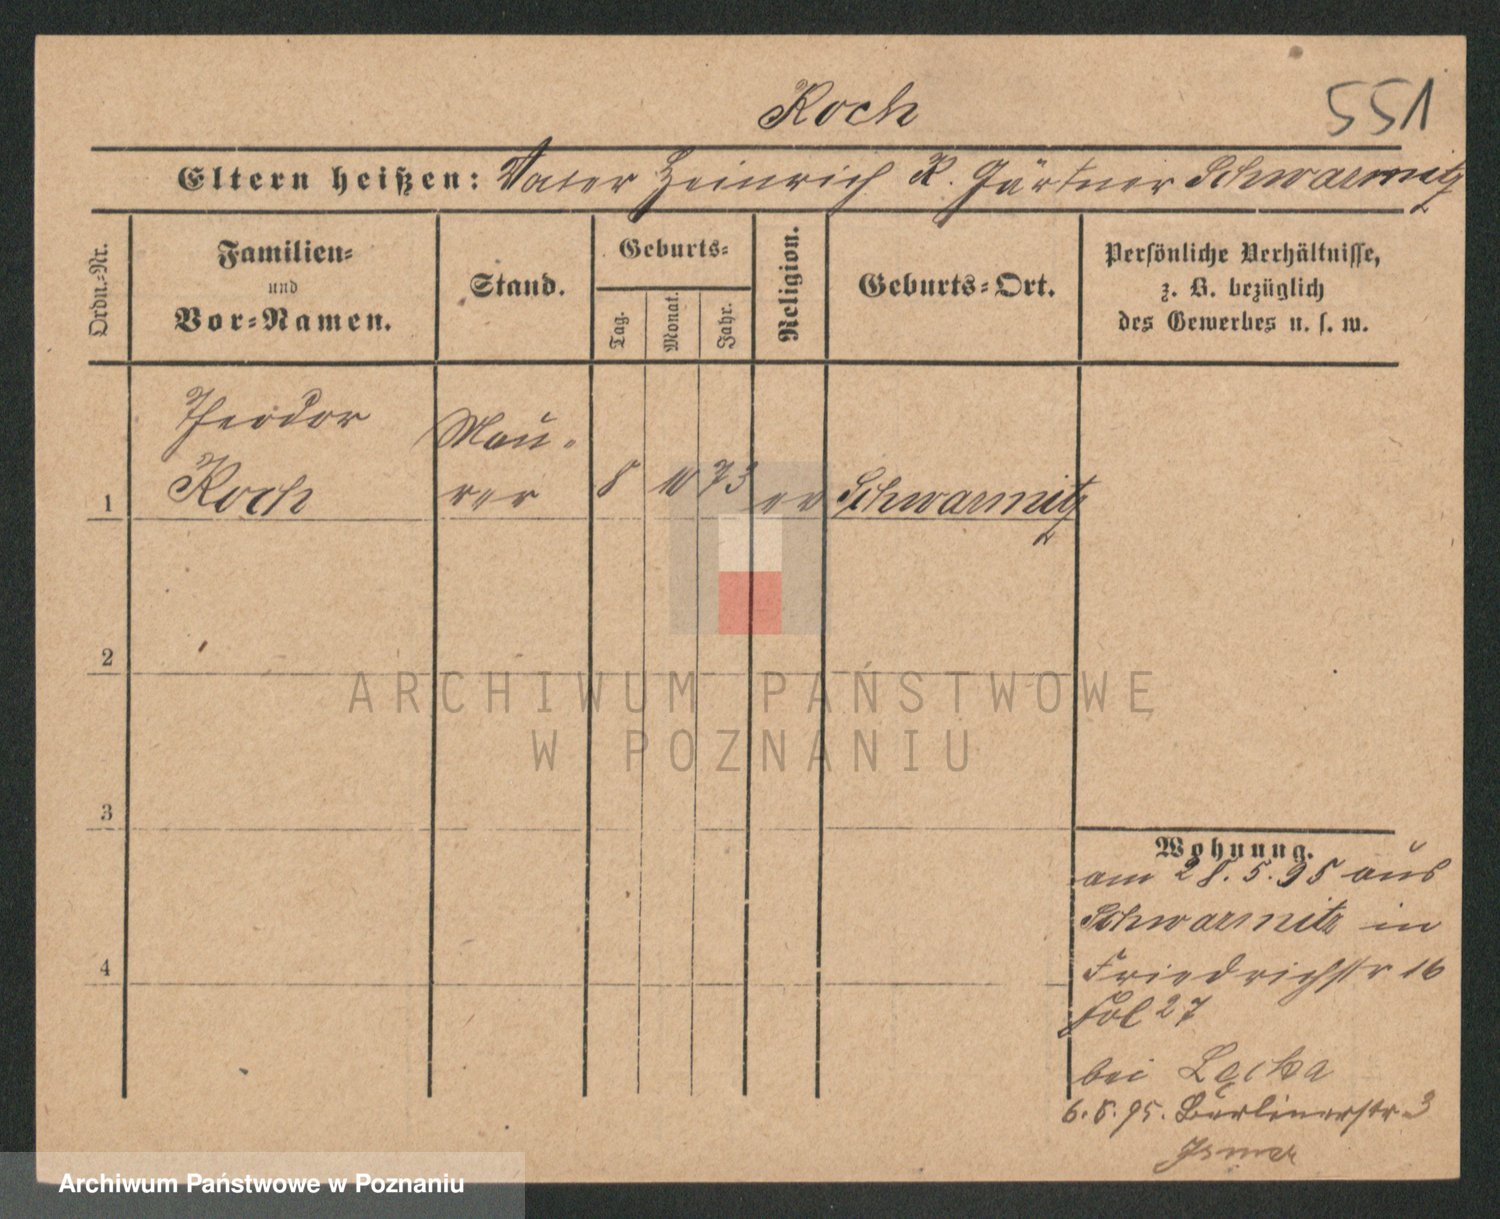 Koch
551
Eltern heißen: Vater Heinrich K. Gärtner Schwarmitz
Ordn.-Nr.
Familien-
und
Vor-Namen.
Stand.
Geburts-
Tag.
Monat.
Jahr.
Religion.
Geburts-Ort.
Persönliche Verhältnisse,
z. B. bezüglich
des Gewerbes u. s. w.
1
Theodor
Koch
Mau-
rer
8
10
73
ev
Schwarmitz
2
3
4
Wohnung.
am 28.5.95 aus
Schwarmitz in
Friedrichstr 16
Fol 27
bei
6.8.95. Berlinerstr. 3
ARCHIWUM PAŃSTWOWE
W POZNANIU
Archiwum Państwowe w Poznaniu